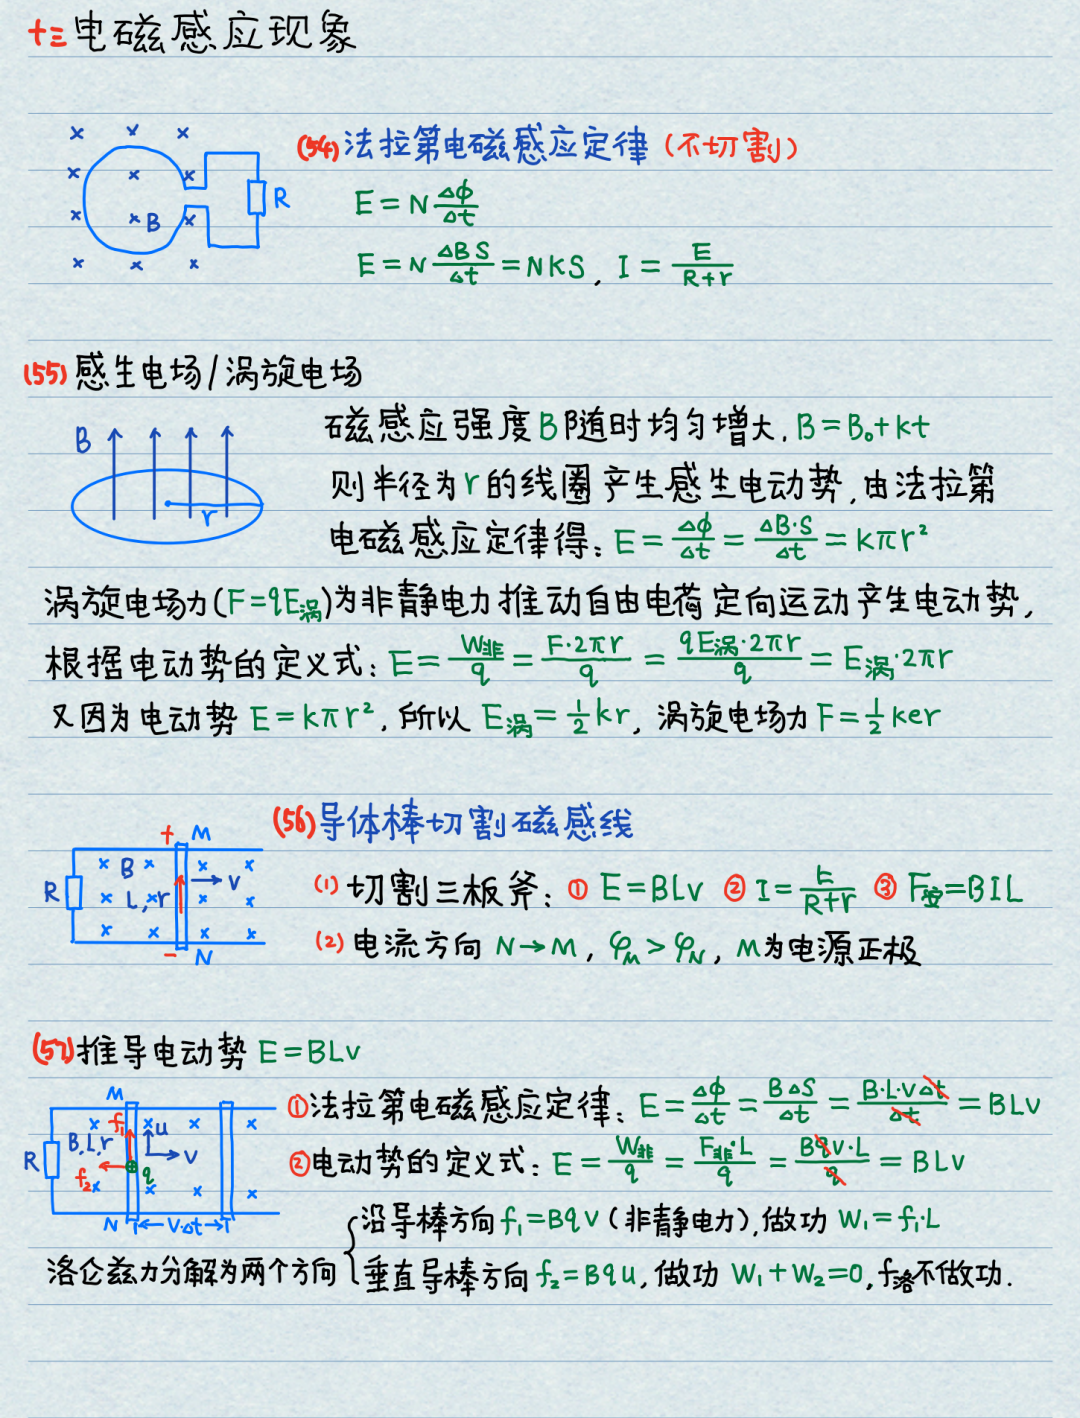 十三 电磁感应现象
(54) 法拉第电磁感应定律 (不切割)
E = N ΔΦ/Δt
E = N ΔBS/Δt = NKS, I = E/(R+r)
B
R
(55) 感生电场/涡旋电场
磁感应强度B随时均匀增大, B = B₀+kt
则半径为r的线圈产生感生电动势,由法拉第
电磁感应定律得: E = ΔΦ/Δt = ΔB·S/Δt = kπr²
B
r
涡旋电场力(F=qE涡)为非静电力推动自由电荷定向运动产生电动势,
根据电动势的定义式: E = W非/q = F·2πr/q = qE涡·2πr/q = E涡·2πr
又因为电动势 E = kπr², 所以 E涡 = ½kr, 涡旋电场力 F = ½ker
(56) 导体棒切割磁感线
(1) 切割三板斧: ① E = BLv ② I = E/(R+r) ③ F安 = BIL
(2) 电流方向 N→M, φM > φN, M为电源正极
+ M
B
R L,r v
- N
(57) 推导电动势 E = BLv
①法拉第电磁感应定律: E = ΔΦ/Δt = BΔS/Δt = B·L·vΔt/Δt = BLv
②电动势的定义式: E = W非/q = F非·L/q = Bqv·L/q = BLv
M
f₁ u
B,L,r v
R f₂ q
N v·Δt
洛仑兹力分解为两个方向
沿导棒方向 f₁ = Bqv (非静电力), 做功 W₁ = f₁·L
垂直导棒方向 f₂ = Bqu, 做功 W₁+W₂=0, f洛不做功.